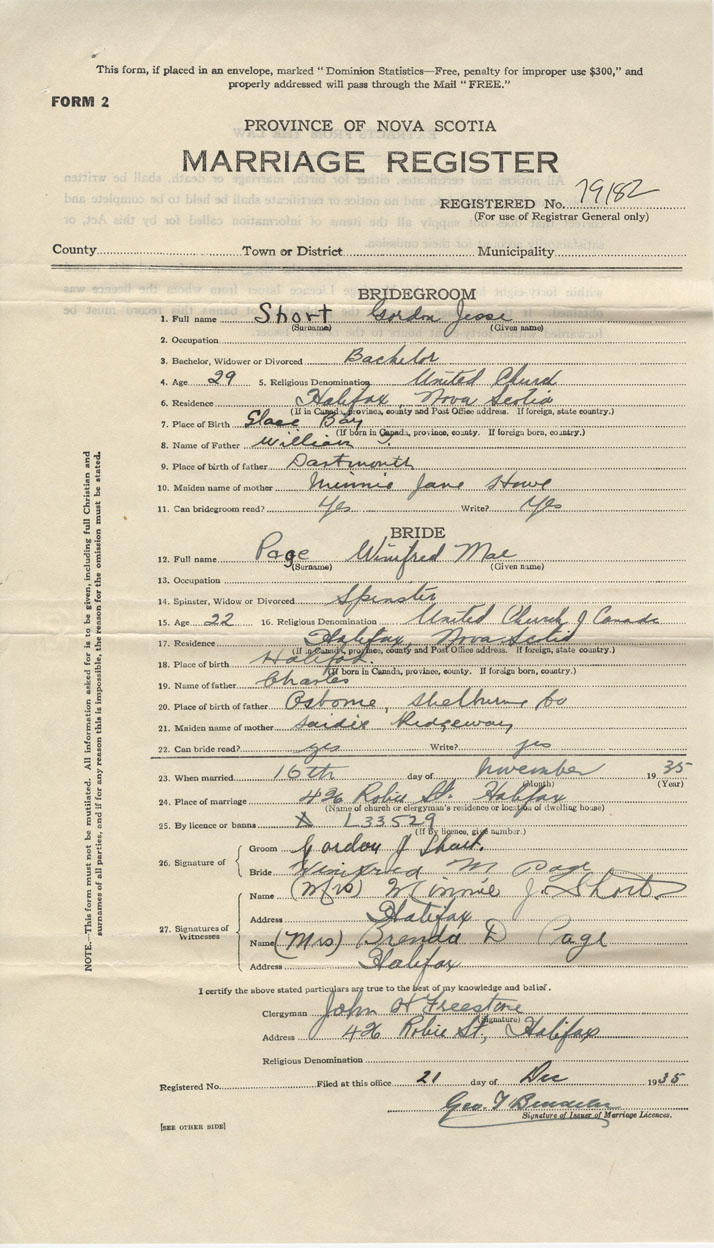 This form, if placed in an envelope, marked "Dominion Statistics—Free, penalty for improper use $300," and
properly addressed will pass through the Mail "FREE."
FORM 2
PROVINCE OF NOVA SCOTIA
MARRIAGE REGISTER
REGISTERED No. 79182
(For use of Registrar General only)
County Town or District Municipality
BRIDEGROOM
1. Full name Short Gordon Jesse
(Surname) (Given name)
2. Occupation
3. Bachelor, Widower or Divorced Bachelor
4. Age 29 5. Religious Denomination United Church
6. Residence Halifax, Nova Scotia
(If in Canada, province, county and Post Office address. If foreign, state country.)
7. Place of Birth Glace Bay
(If born in Canada, province, county. If foreign born, country.)
8. Name of Father William J.
9. Place of birth of father Dartmouth
10. Maiden name of mother Minnie Jane Howe
11. Can bridegroom read? Yes Write? Yes
BRIDE
12. Full name Page Winifred Mae
(Surname) (Given name)
13. Occupation
14. Spinster, Widow or Divorced Spinster
15. Age 22 16. Religious Denomination United Church of Canada
17. Residence Halifax, Nova Scotia
(If in Canada, province, county and Post Office address. If foreign, state country.)
18. Place of birth Halifax.
(If born in Canada, province, county. If foreign born, country.)
19. Name of father Charles
20. Place of birth of father Osborne, Shelburne Co
21. Maiden name of mother Saidie Ridgeway
22. Can bride read? yes Write? yes
23. When married 16th day of November 1935
(Month) (Year)
24. Place of marriage 496 Robie St. Halifax
(Name of church or clergyman's residence or location of dwelling house)
25. By licence or banns X L33529
(If by licence, give number.)
26. Signature of
Groom Gordon J Short.
Bride Winifred M Page
27. Signatures of Witnesses
Name (Mrs) Minnie J. Short
Address Halifax
Name (Mrs) Brenda D Page
Address Halifax
I certify the above stated particulars are true to the best of my knowledge and belief.
Clergyman John H Freestone
(Signature)
Address 496 Robie St, Halifax
Religious Denomination
Registered No. Filed at this office 21 day of Dec 1935
Geo.
Signature of Issuer of Marriage Licences.
[SEE OTHER SIDE]
NOTE.—This form must not be mutilated. All information asked for is to be given, including full Christian and
surnames of all parties, and if for any reason this is impossible, the reason for the omission must be stated.